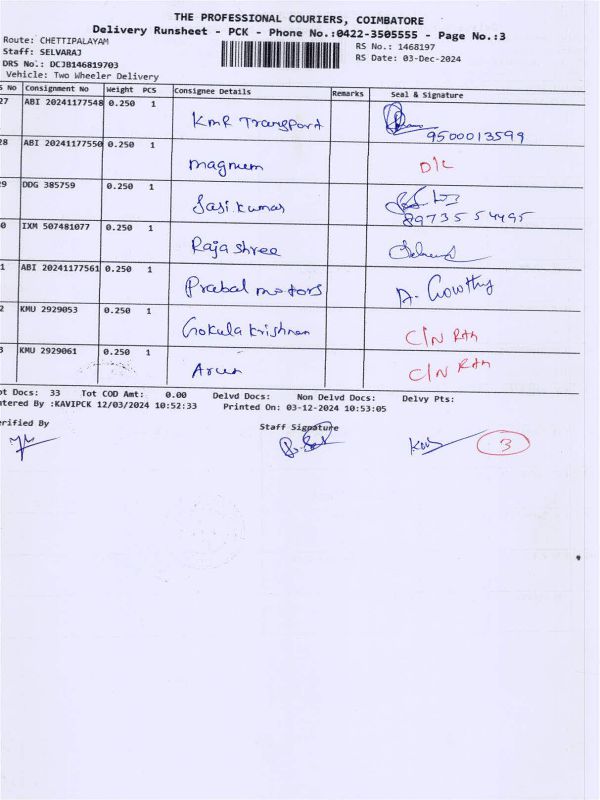 THE PROFESSIONAL COURIERS, COIMBATORE
Delivery Runsheet - PCK - Phone No.:0422-3505555 - Page No.:3
Route: CHETTIPALAYAM
RS No.: 1468197
Staff: SELVARAJ
RS Date: 03-Dec-2024
DRS No.: DCJB146819703
Vehicle: Two Wheeler Delivery
S No Consignment No Weight PCS Consignee Details Remarks Seal & Signature
27 ABI 20241177548 0.250 1
KMR Transport
9500013599
28 ABI 20241177550 0.250 1
magnum D/L
29 DDG 385759 0.250 1
Sasi kumar
8973554495
0 IXM 507481077 0.250 1
Rajashree
1 ABI 20241177561 0.250 1
Prabal motors A. Gowthy
2 KMU 2929053 0.250 1
Gokula krishnan C/N RAM
3 KMU 2929061 0.250 1
Arun C/N RAM
ot Docs: 33 Tot COD Amt: 0.00 Delvd Docs: Non Delvd Docs: Delvy Pts:
ntered By :KAVIPCK 12/03/2024 10:52:33 Printed On: 03-12-2024 10:53:05
erified By
Staff Signature
3